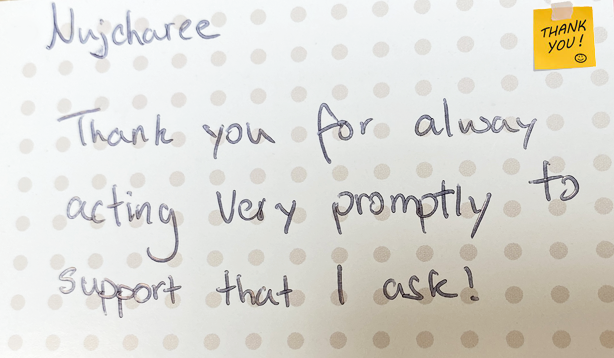 Nujcharee
THANK
YOU!
Thank you for alway
acting very promptly to
support that I ask!